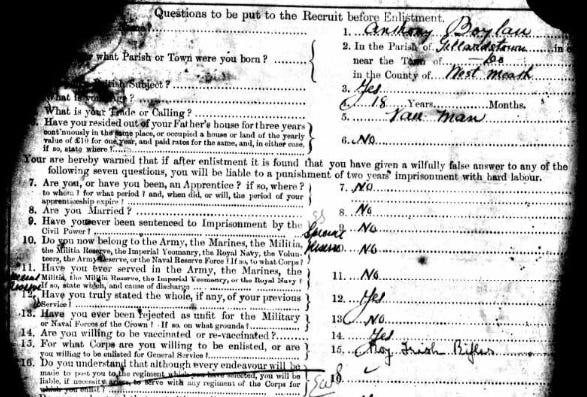 Questions to be put to the Recruit before Enlistment.
Name?
1. Anthony Boylan
what Parish or Town were you born?
2. In the Parish of
near the Town of Do
in the County of West Meath
British Subject?
3. Yes
What is your Age?
18 Years Months.
What is your Trade or Calling?
5. Van Man
Have you resided out of your Father's house for three years
continuously in the same place, or occupied a house or land of the yearly
value of £10 for one year, and paid rates for the same, and, in either case,
if so, state where?
6. No
You are hereby warned that if after enlistment it is found that you have given a wilfully false answer to any of the
following seven questions, you will be liable to a punishment of two years imprisonment with hard labour.
7. Are you, or have you been, an Apprentice? if so, where?
to whom? for what period? and, when did, or will, the period of your
apprenticeship expire?
7. No
8. Are you Married?
8. No
9. Have you ever been sentenced to Imprisonment by the
Civil Power?
No
10. Do you now belong to the Army, the Marines, the Militia,
the Militia Reserve, the Imperial Yeomanry, the Royal Navy, the Volun-
teers, the Army Reserve, or the Naval Reserve Force? If so, to what Corps?
Special
No
11. Have you ever served in the Army, the Marines, the
Militia, the Militia Reserve, the Imperial Yeomanry, or the Royal Navy?
If so, state which, and cause of discharge
11. No
12. Have you truly stated the whole, if any, of your previous
Service?
12. Yes
13. Have you ever been rejected as unfit for the Military
or Naval Forces of the Crown? If so, on what grounds?
13. No
14. Are you willing to be vaccinated or re-vaccinated?
14. Yes
15. For what Corps are you willing to be enlisted, or are
you willing to be enlisted for General Service?
15. Roy Irish Rifles
16. Do you understand that although every endeavour will be
made to post you to the regiment which you have selected, you will be
liable, if necessity arises, to serve with any regiment of the Corps for
which you enlist?